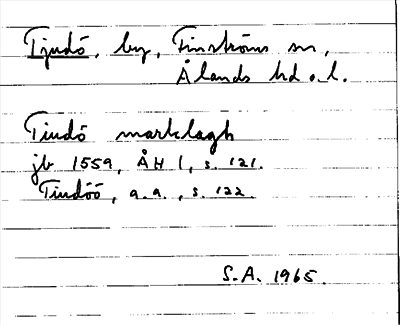 Tjudö, by, Finströms sn,
Ålands hd o. l.
Tiudö marklagh
jb 1559, ÅH 1, s. 121.
Tiudöö, a.a., s. 122.
S.A. 1965.